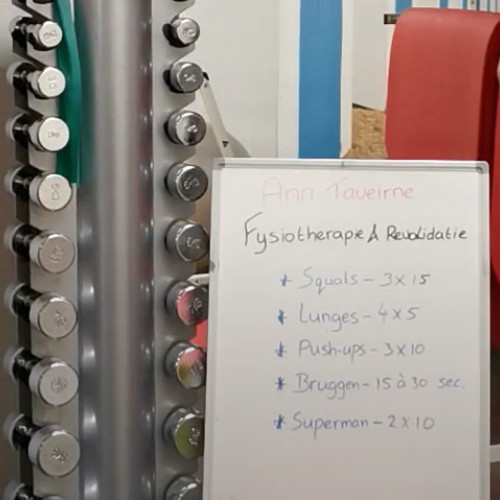 Ann Taveirne
Fysiotherapie & Revalidatie
* Squats - 3 x 15
* Lunges - 4 x 5
* Push-ups - 3 x 10
* Bruggen - 15 à 30 sec.
* Superman - 2 x 10